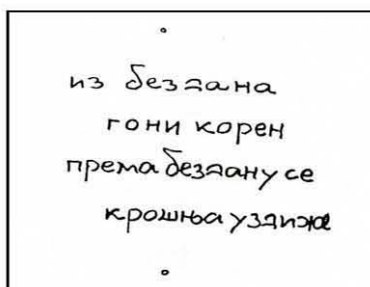 из бездана
гони корен
према бездану се
крошња уздиже